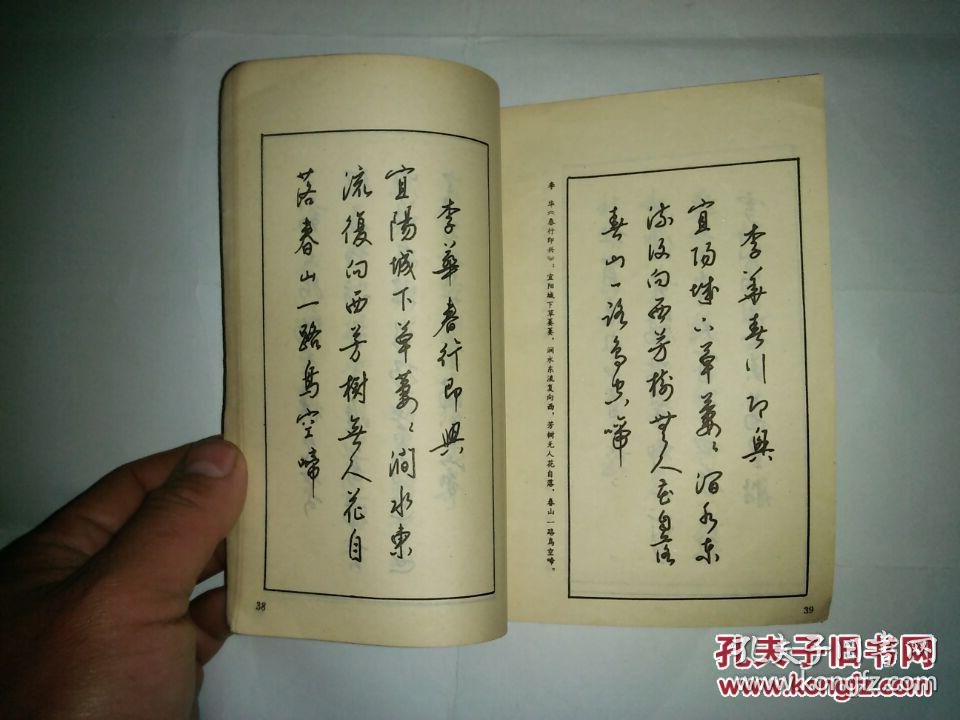 李華春行即興
宜陽城下草萋〻澗水東
流復向西芳樹無人花自
落春山一路鳥空啼
38
李 华《春行即兴》：宜阳城下草萋萋，涧水东流复向西，芳树无人花自落，春山一路鸟空啼。
李華春行即興
宜陽城下草萋〻澗水東
流復向西芳樹無人花自落
春山一路鳥空啼
39
孔夫子旧书网
www.kongfz.com